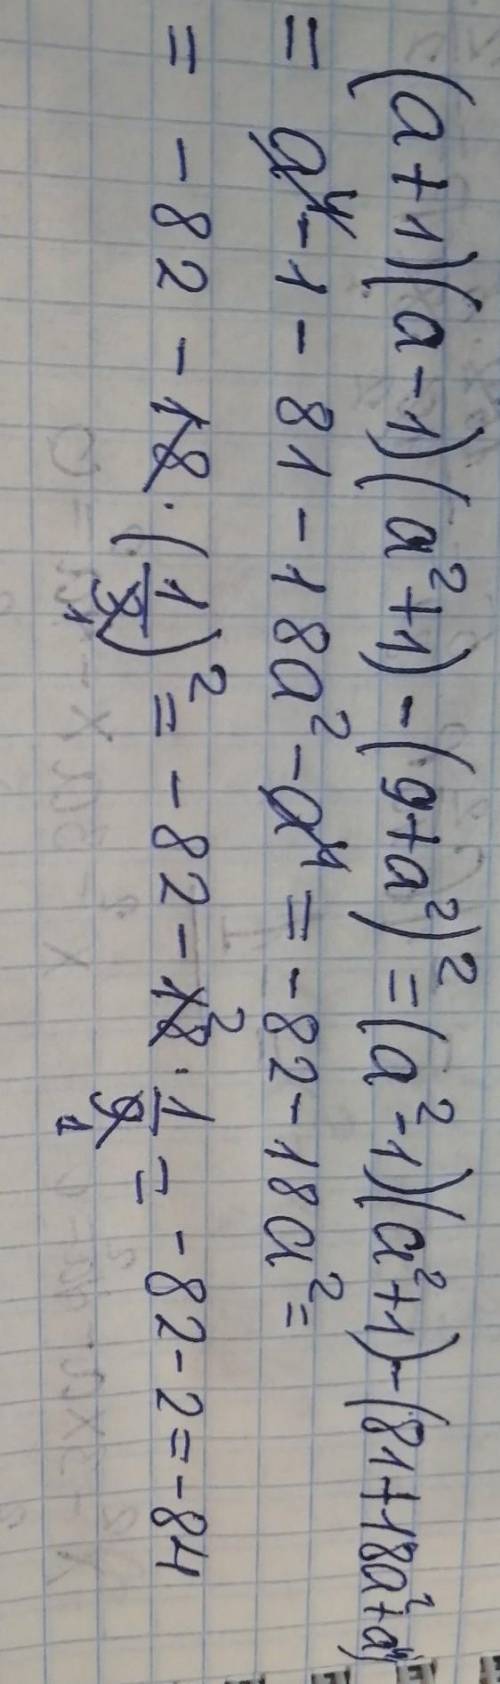 (a+1)(a-1)(a²+1)-(9+a²)²=(a²-1)(a²+1)-(81+18a²+a⁴)
= a⁴-1-81-18a²-a⁴=-82-18a²=
= -82-18·(1/3)²=-82-18²·1/9₁=-82-2=-84